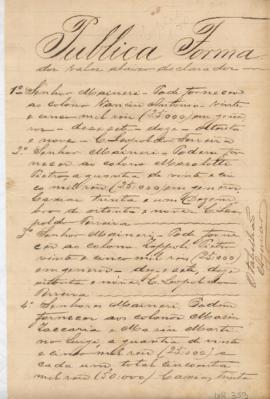 Publica Forma
dos vales abaixo declarados
1º Senhor Maineri - Pode fornecer
ao colono Antonio - vinte
e cinco mil reis (25.000) em gene
ros - dezesete - doze - oitenta
e nove - C. Leopoldo Ferreira
2º Senhor Maineri - Podem
fornecer ao colono
Pietro, a quantia de vinte e cin
co mil reis (25.000) em generos,
Caxias trinta e um
bro de oitenta e nove C. Leo
poldo Ferreira
3º Senhor Maineri - Pode forne
cer ao colono Zoppoli Pietro
vinte e cinco mil reis (25.000)
em generos - dezesete, doze
oitenta e nove C. Leopoldo
Ferreira
4º Senhores Maineri Podem
fornecer aos colonos
Zaccaria e
Luigi, a quantia de vinte
e cinco mil reis (25.000) a
cada um, total cincoenta
mil reis (50.000) Caxias, trinta
O tabellião